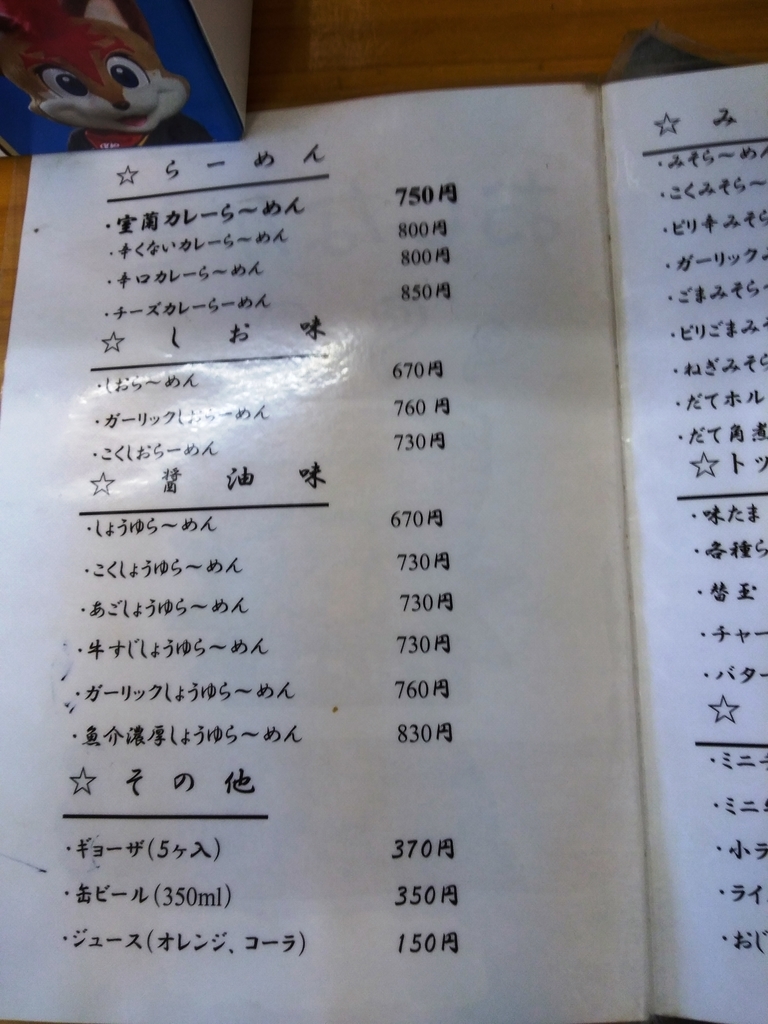 ☆ らーめん
・室蘭カレーら～めん 750円
・辛くないカレーら～めん 800円
・辛口カレーら～めん 800円
・チーズカレーらーめん 850円
☆ しお味
・しおら～めん 670円
・ガーリックしおらーめん 760円
・こくしおらーめん 730円
☆ 醤油味
・しょうゆら～めん 670円
・こくしょうゆら～めん 730円
・あごしょうゆら～めん 730円
・牛すじしょうゆら～めん 730円
・ガーリックしょうゆら～めん 760円
・魚介濃厚しょうゆら～めん 830円
☆ その他
・ギョーザ(5ヶ入) 370円
・缶ビール(350ml) 350円
・ジュース(オレンジ、コーラ) 150円
☆ み
・みそら～めん
・こくみそら～
・ピリ辛みそら
・ガーリックみ
・ごまみそら～
・ピリごまみそ
・ねぎみそら
・だてホル
・だて角煮
☆トッ
・味たま
・各種ら
・替玉
・チャー
・バター
☆
・ミニチ
・ミニ
・小ラ
・ライ
・おじ